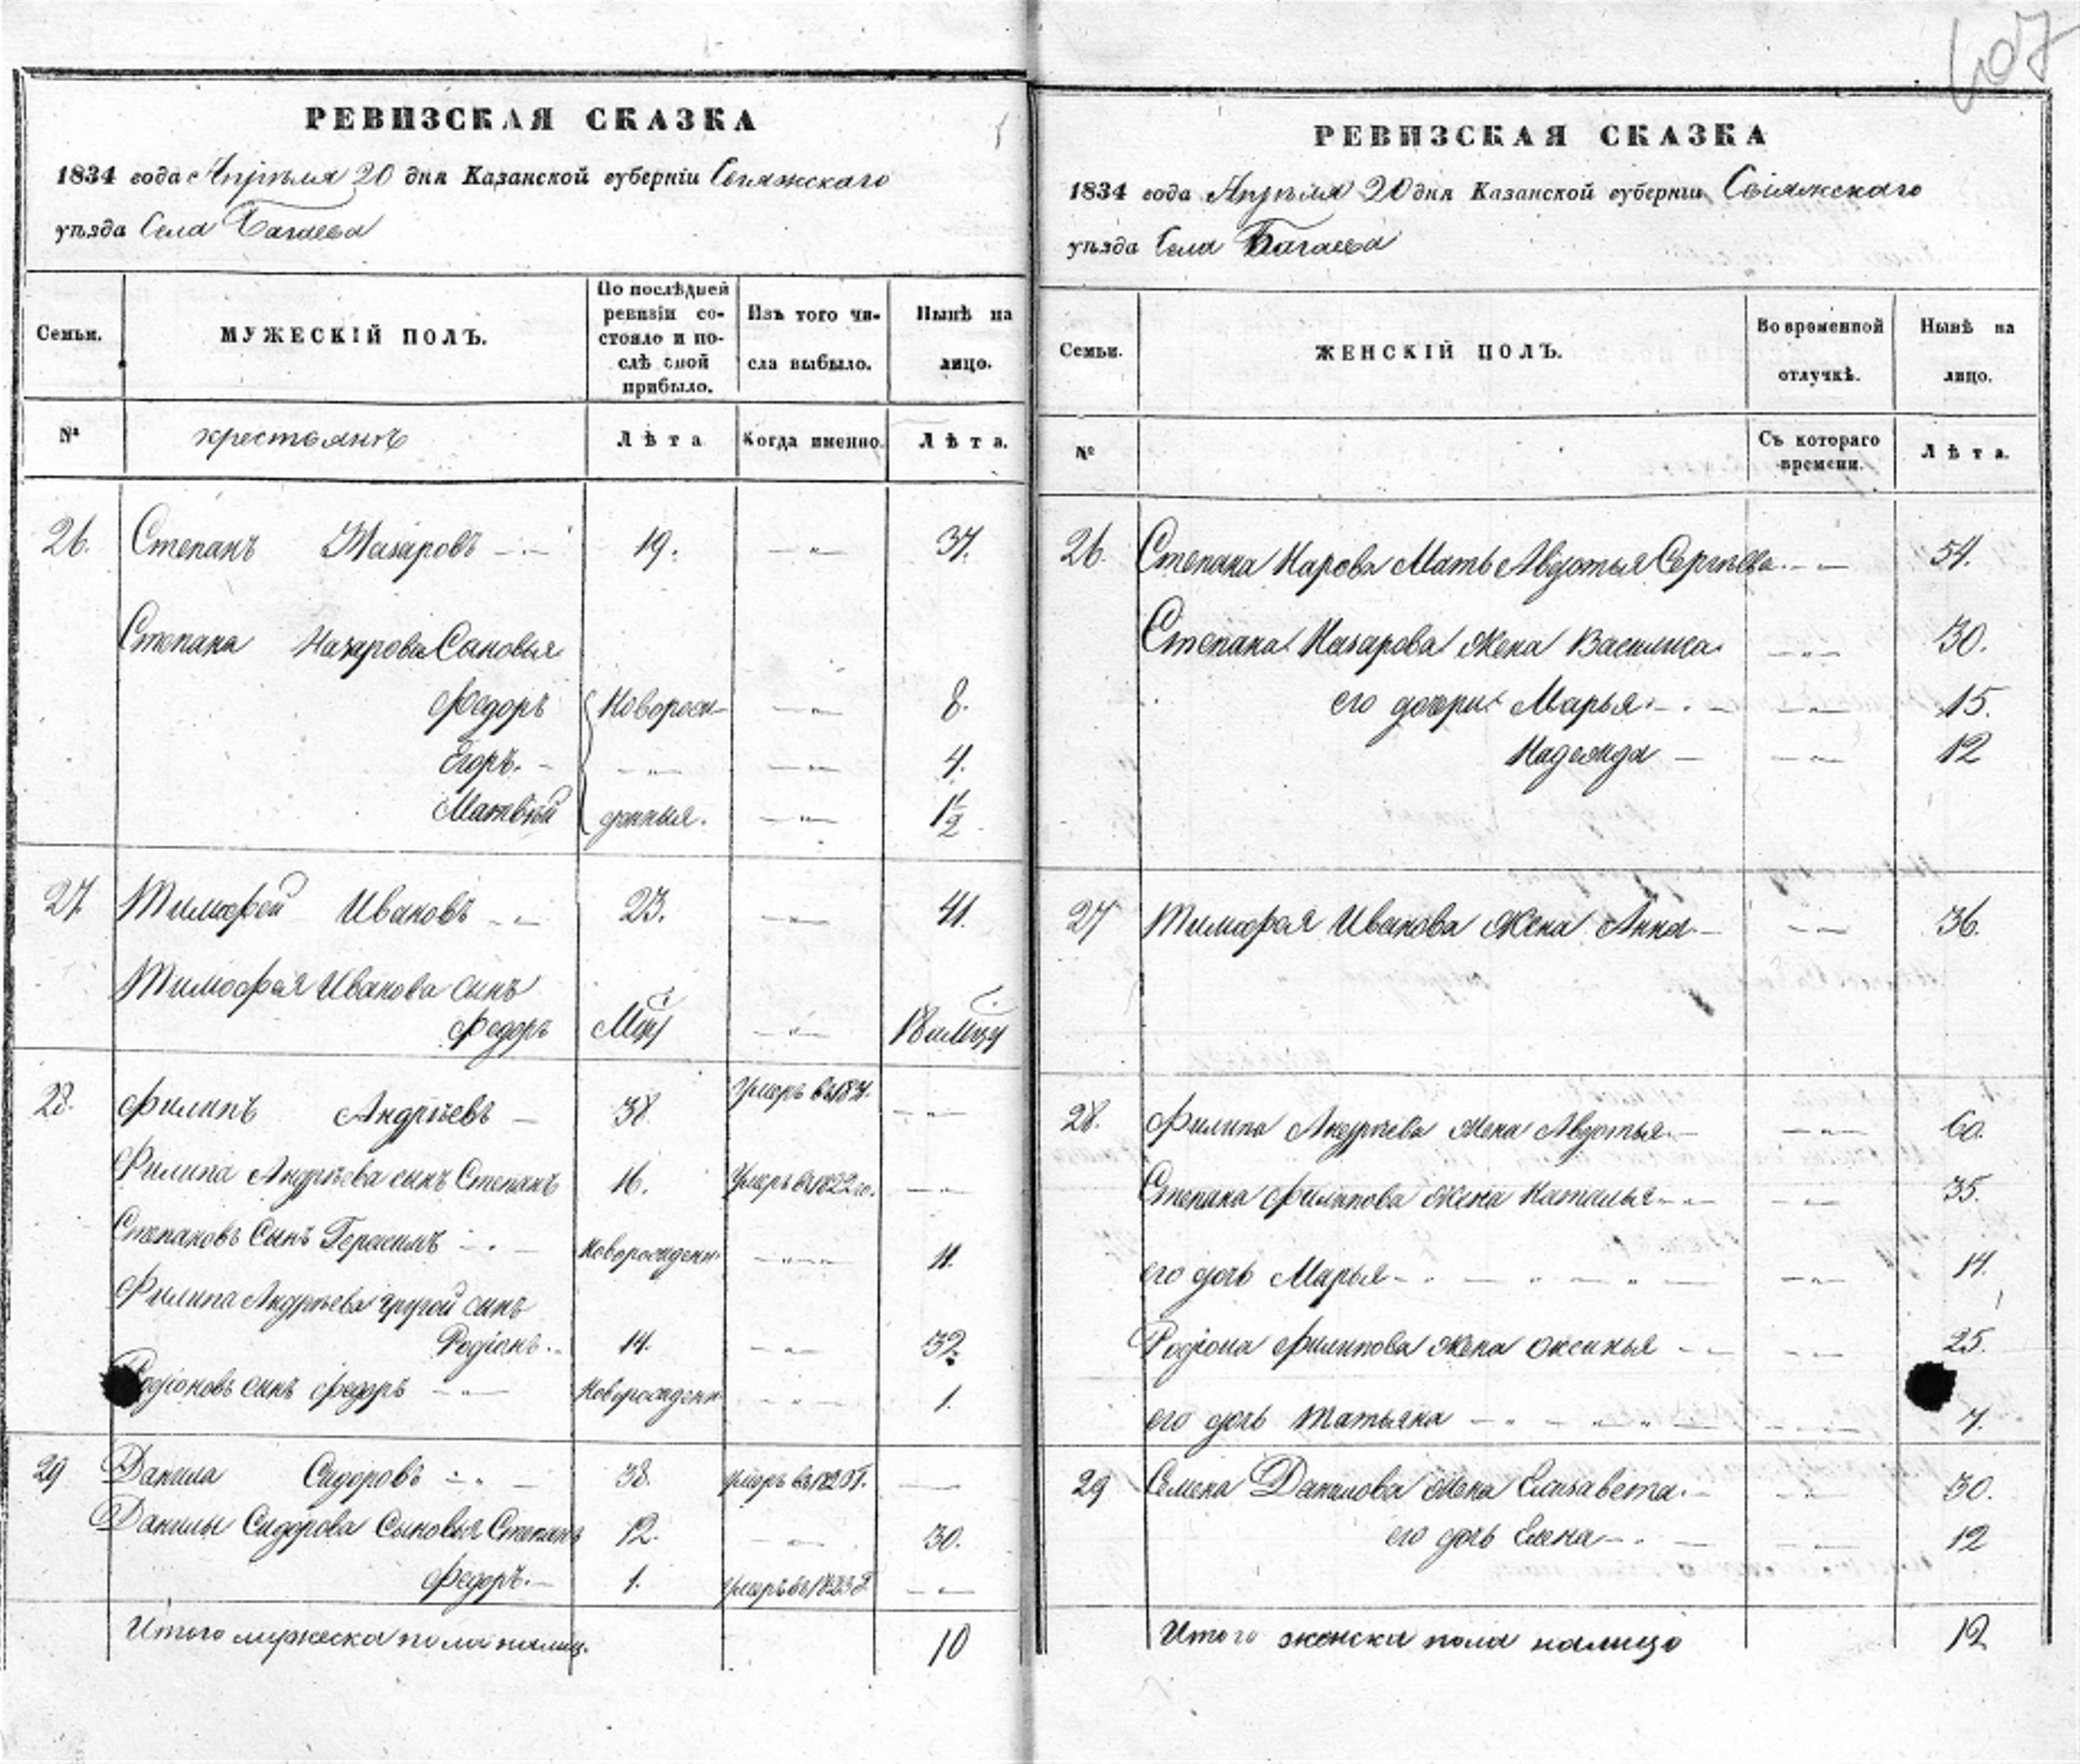 607
РЕВИЗСКАЯ СКАЗКА
1834 года Апрѣля 20 дня Казанской губернiи Свiяжскаго
уѣзда Села Багаева
Семьи.
МУЖЕСКIЙ ПОЛЪ.
По послѣдней ревизiи состояло и послѣ оной прибыло.
Изъ того числа выбыло.
Нынѣ на лицо.
№ крестьянъ Лѣта Когда именно. Лѣта.
26. Степанъ Назаровъ 19. 37.
Степана Назарова Сыновья
Федоръ Новорож- 8.
Егоръ. 4.
Матвѣй денныя. 1½
27. Тимофей Ивановъ 23. 41.
Тимофея Иванова сынъ
Федоръ
28. Филипъ Андрѣевъ 38. Умеръ въ
Филипа Андрѣева сынъ Степанъ 16. Умеръ въ 1822 го.
Степановъ Сынъ Герасимъ Новорожденн 11.
Филипа Андрѣева другой сынъ
Родiонъ. 14. 32.
Родiоновъ сынъ Федоръ Новорожденн 1.
29 Данила Сидоровъ 38. умеръ въ
Данилы Сидорова Сыновья Степанъ 12. 30.
Федоръ. 1. умеръ въ 1832
Итого мужеска пола налиц. 10
РЕВИЗСКАЯ СКАЗКА
1834 года Апрѣля 20 дня Казанской губернiи Свiяжскаго
уѣзда Села Багаева
Семьи.
ЖЕНСКIЙ ПОЛЪ.
Во временной отлучкѣ.
Нынѣ на лицо.
№ Съ котораго времени. Лѣта.
26. Степана Нарова Мать Авдотья Сергѣева. 54.
Степана Назарова Жена Василиса 30.
его дочери Марья 15.
Надежда 12
27 Тимофея Иванова Жена Анна 36.
28. Филипа Андрѣева Жена Авдотья 60.
Степана Филипова Жена Наталья 35.
его дочь Марья 14.
Родiона Филипова Жена Оксинья 25.
его дочь Татьяна 7.
29 Семена Данилова Жена Елизавета. 30.
его дочь Елена 12
Итого женска пола налицо 12